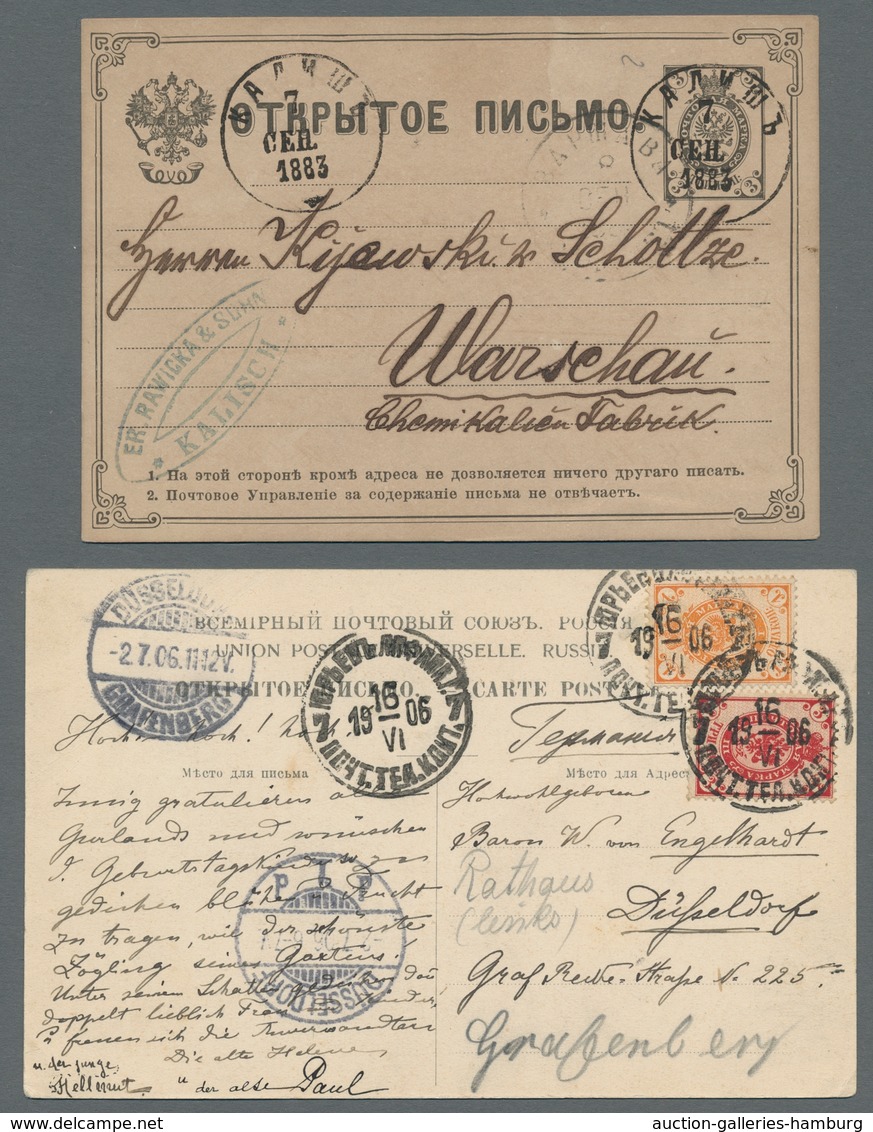 КАЛИШЪ
7
СЕН.
1883
ОТКРЫТОЕ ПИСЬМО.
КАЛИШЪ
7
СЕН.
1883
Herren Kijewski & Scholtze.
Warschau.
Chemikalien Fabrik.
ER. RAWICKA & SOHN
* KALISCH *
1. На этой сторонѣ кромѣ адреса не дозволяется ничего другаго писать.
2. Почтовое Управленіе за содержаніе письма не отвѣчаетъ.
DÜSSELDORF
-2.7.06.11-12V.
GRAFENBERG
ВСЕМІРНЫЙ ПОЧТОВЫЙ СОЮЗЪ. РОССІЯ
UNION POSTALE UNIVERSELLE. RUSSIE
ОТКРЫТОЕ ПИСЬМО. CARTE POSTALE
ЮРЬЕВЪ
16
19 06
VI
ПОЧТ.ТЕЛ.КОН.
16
19 06
VI
ПОЧТ.ТЕ
16
19 06
VI
ПОЧТ.ТЕЛ.КОН.
Hoch! hoch! hoch!
Германія
Мѣсто для письма
Мѣсто для Адреса
Innig gratulieren
und wünschen
Geburtstagskinde
gedeihen blühen Frucht
zu tragen, wie der schönste
Zögling seines Gartens!
Unter seinem Schatten gedeihen
doppelt lieblich Frau
freuen sich die Anverwandten
Die alte Helene
u. der junge
Hellmut.
u der alte Paul
P I P
DÜSSELDORF
Hochwohlgeboren
Baron W. von Engelhardt
Rathaus
(links)
Düsseldorf
Graf Recke-Strasse No 225.
Grafenberg
auction-galleries-hamburg